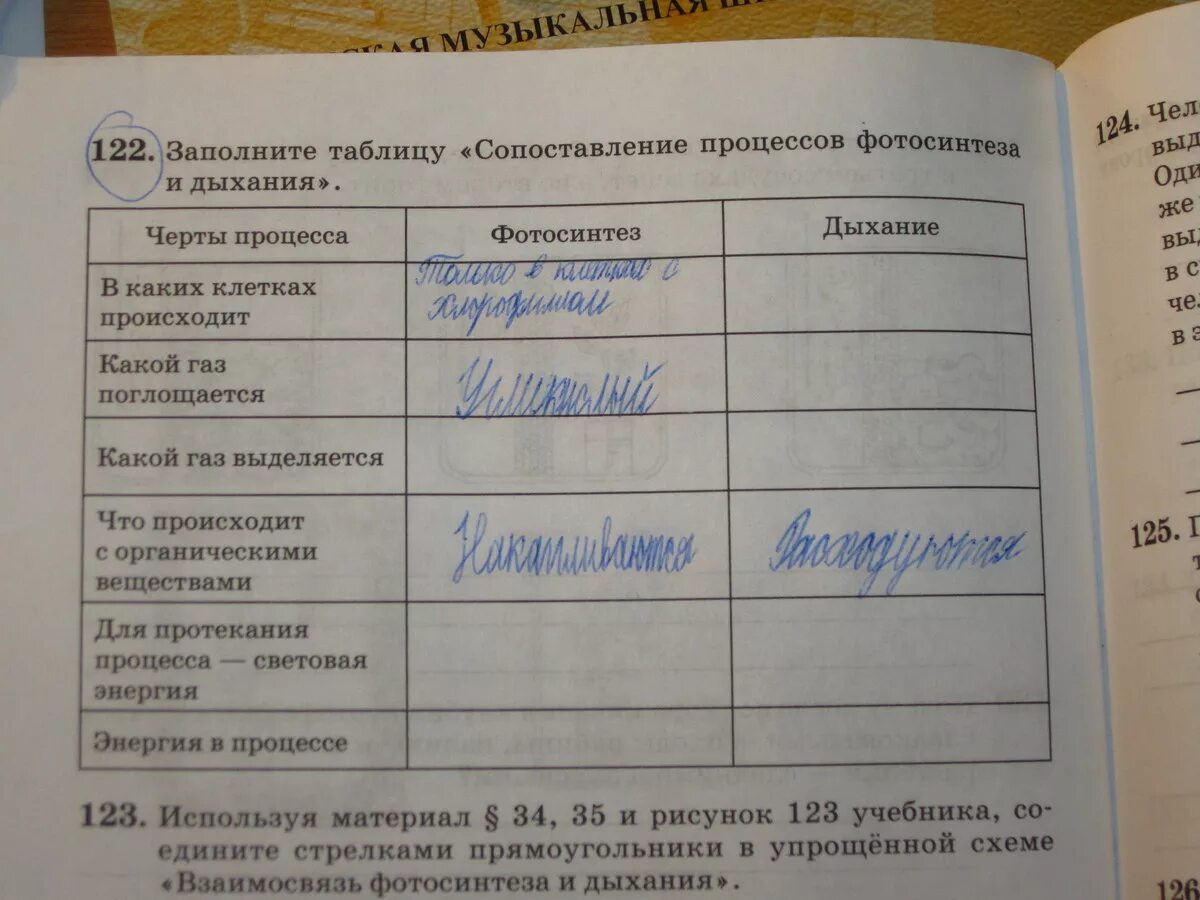 СКАЯ МУЗЫКАЛЬНАЯ
122. Заполните таблицу «Сопоставление процессов фотосинтеза
и дыхания».
Черты процесса
Фотосинтез
Дыхание
В каких клетках
происходит
Только в клетках с
хлорофиллом
Какой газ
поглощается
Углекислый
Какой газ выделяется
Что происходит
с органическими
веществами
Накапливаются
Расходуются
Для протекания
процесса — световая
энергия
Энергия в процессе
123. Используя материал § 34, 35 и рисунок 123 учебника, со-
едините стрелками прямоугольники в упрощённой схеме
«Взаимосвязь фотосинтеза и дыхания».
124. Чел
выд
Оди
же
выд
в с
че
в з
125. П
126